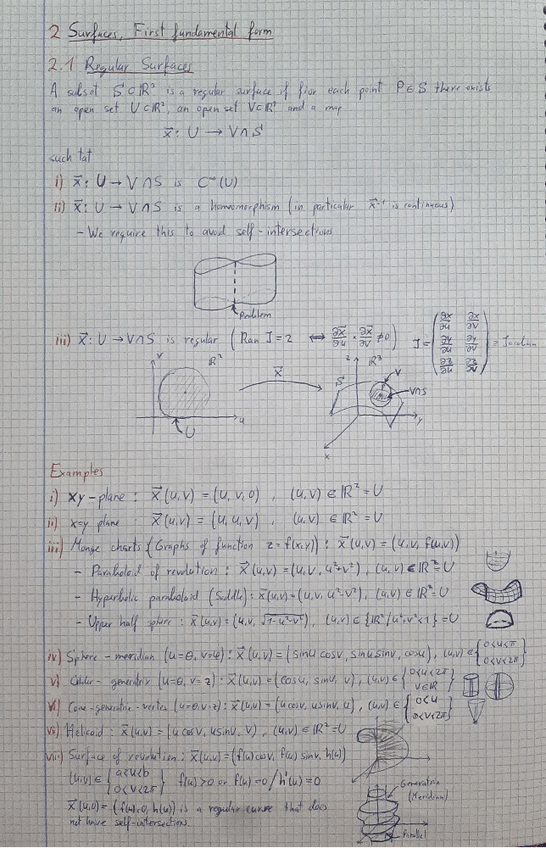 2 Surfaces, First fundamental form
2.1 Regular Surfaces
A subset S⊂ℝ² is a regular surface if for each point P∈S there exists
an open set U⊂ℝ², an open set V⊂ℝ² and a map
x⃗: U → V∩S
such tat
i) x⃗: U → V∩S is C^∞(U)
ii) x⃗: U → V∩S is a homomorphism (in particular x⃗⁻¹ is continuous)
- We require this to avoid self-intersections
Problem
iii) x⃗: U → V∩S is regular (Ran J=2 ⟺ ∂x⃗/∂u × ∂x⃗/∂v ≠0) J = (∂x/∂u ∂x/∂v ∂y/∂u ∂y/∂v ∂z/∂u ∂z/∂v) = Jacobian
v ℝ² x⃗ z ℝ³ S V
V∩S
u y
U
x
Examples
i) xy-plane : x⃗(u,v) = (u,v,0) , (u,v) ∈ ℝ² = U
ii) x=y plane x⃗(u,v) = (u,u,v) , (u,v) ∈ ℝ² = U
iii) Monge charts (Graphs of function z=f(x,y)) : x⃗(u,v) = (u,v, f(u,v))
- Paraboloid of revolution : x⃗(u,v) = (u,v, u²+v²) , (u,v) ∈ ℝ² = U
- Hyperbolic paraboloid (Saddle) : x⃗(u,v) = (u,v, u²-v²) , (u,v) ∈ ℝ² = U
- Upper half sphere : x⃗(u,v) = (u,v, √1-u²-v²) , (u,v) ∈ {ℝ²/u²+v²<1} = U
iv) Sphere-meridian (u=θ, v=φ) : x⃗(u,v) = (sinu cosv, sinu sinv, cosu) , (u,v) ∈ {0<u<π 0<v<2π}
v) generator (u=θ, v=z) : x⃗(u,v) = (cosu, sinu, v) , (u,v) ∈ {0<u<2π v∈ℝ}
vi) Cone-generator-vertex (u=θ, v=z) : x⃗(u,v) = (u cosv, u sinv, u) , (u,v) ∈ {0<u 0<v<2π}
vii) Helicoid : x⃗(u,v) = (u cosv, u sinv, v) , (u,v) ∈ ℝ² = U
viii) Surface of revolution : x⃗(u,v) = (f(u)cosv, f(u) sinv, h(u))
(u,v) ∈ {a<u<b 0<v<2π} f(u)>0 or f(u)=0 / h'(u)=0
Generatrix
(Meridian)
x⃗(u,0) = (f(u),0, h(u)) is a regular curve that does
not have self-intersection.
Parallel